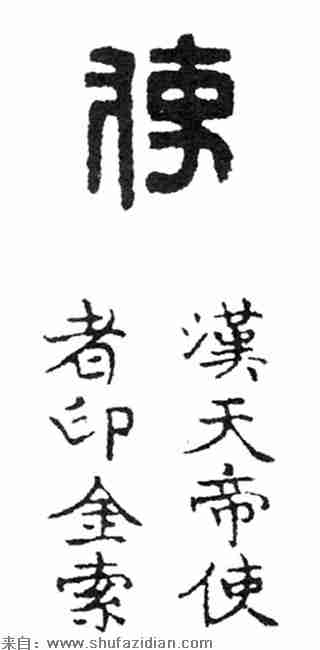 使
漢天帝使
者印金索
来自：www.shufazidian.com